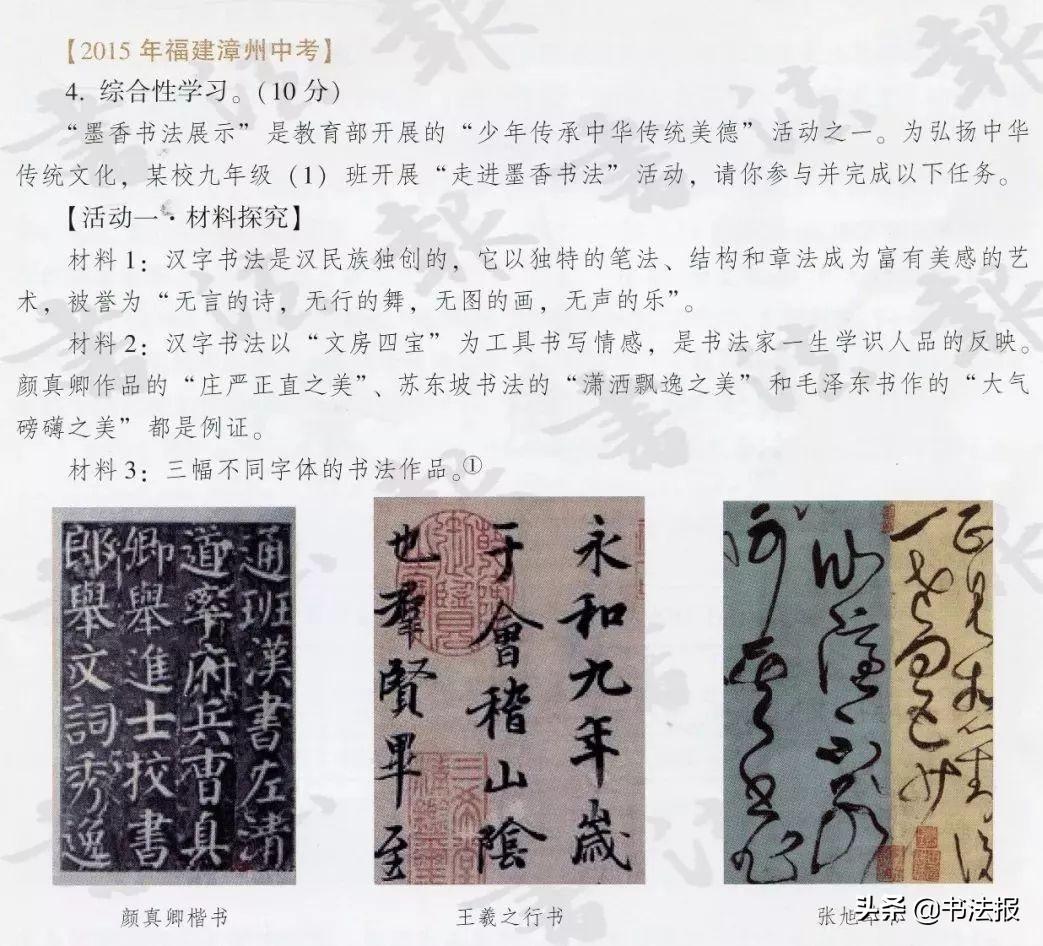 【2015 年福建漳州中考】
4. 综合性学习。(10 分)
“墨香书法展示”是教育部开展的“少年传承中华传统美德”活动之一。为弘扬中华
传统文化，某校九年级（1）班开展“走进墨香书法”活动，请你参与并完成以下任务。
【活动一·材料探究】
材料 1：汉字书法是汉民族独创的，它以独特的笔法、结构和章法成为富有美感的艺
术，被誉为“无言的诗，无行的舞，无图的画，无声的乐”。
材料 2：汉字书法以“文房四宝”为工具书写情感，是书法家一生学识人品的反映。
颜真卿作品的“庄严正直之美”、苏东坡书法的“潇洒飘逸之美”和毛泽东书作的“大气
磅礴之美”都是例证。
材料 3：三幅不同字体的书法作品。①
通班漢書左清
道率府兵曹真
卿舉進士校書
郎舉文詞秀逸
永和九年歲
于會稽山陰
也羣賢畢至
颜真卿楷书
王羲之行书
张旭
头条 @书法报